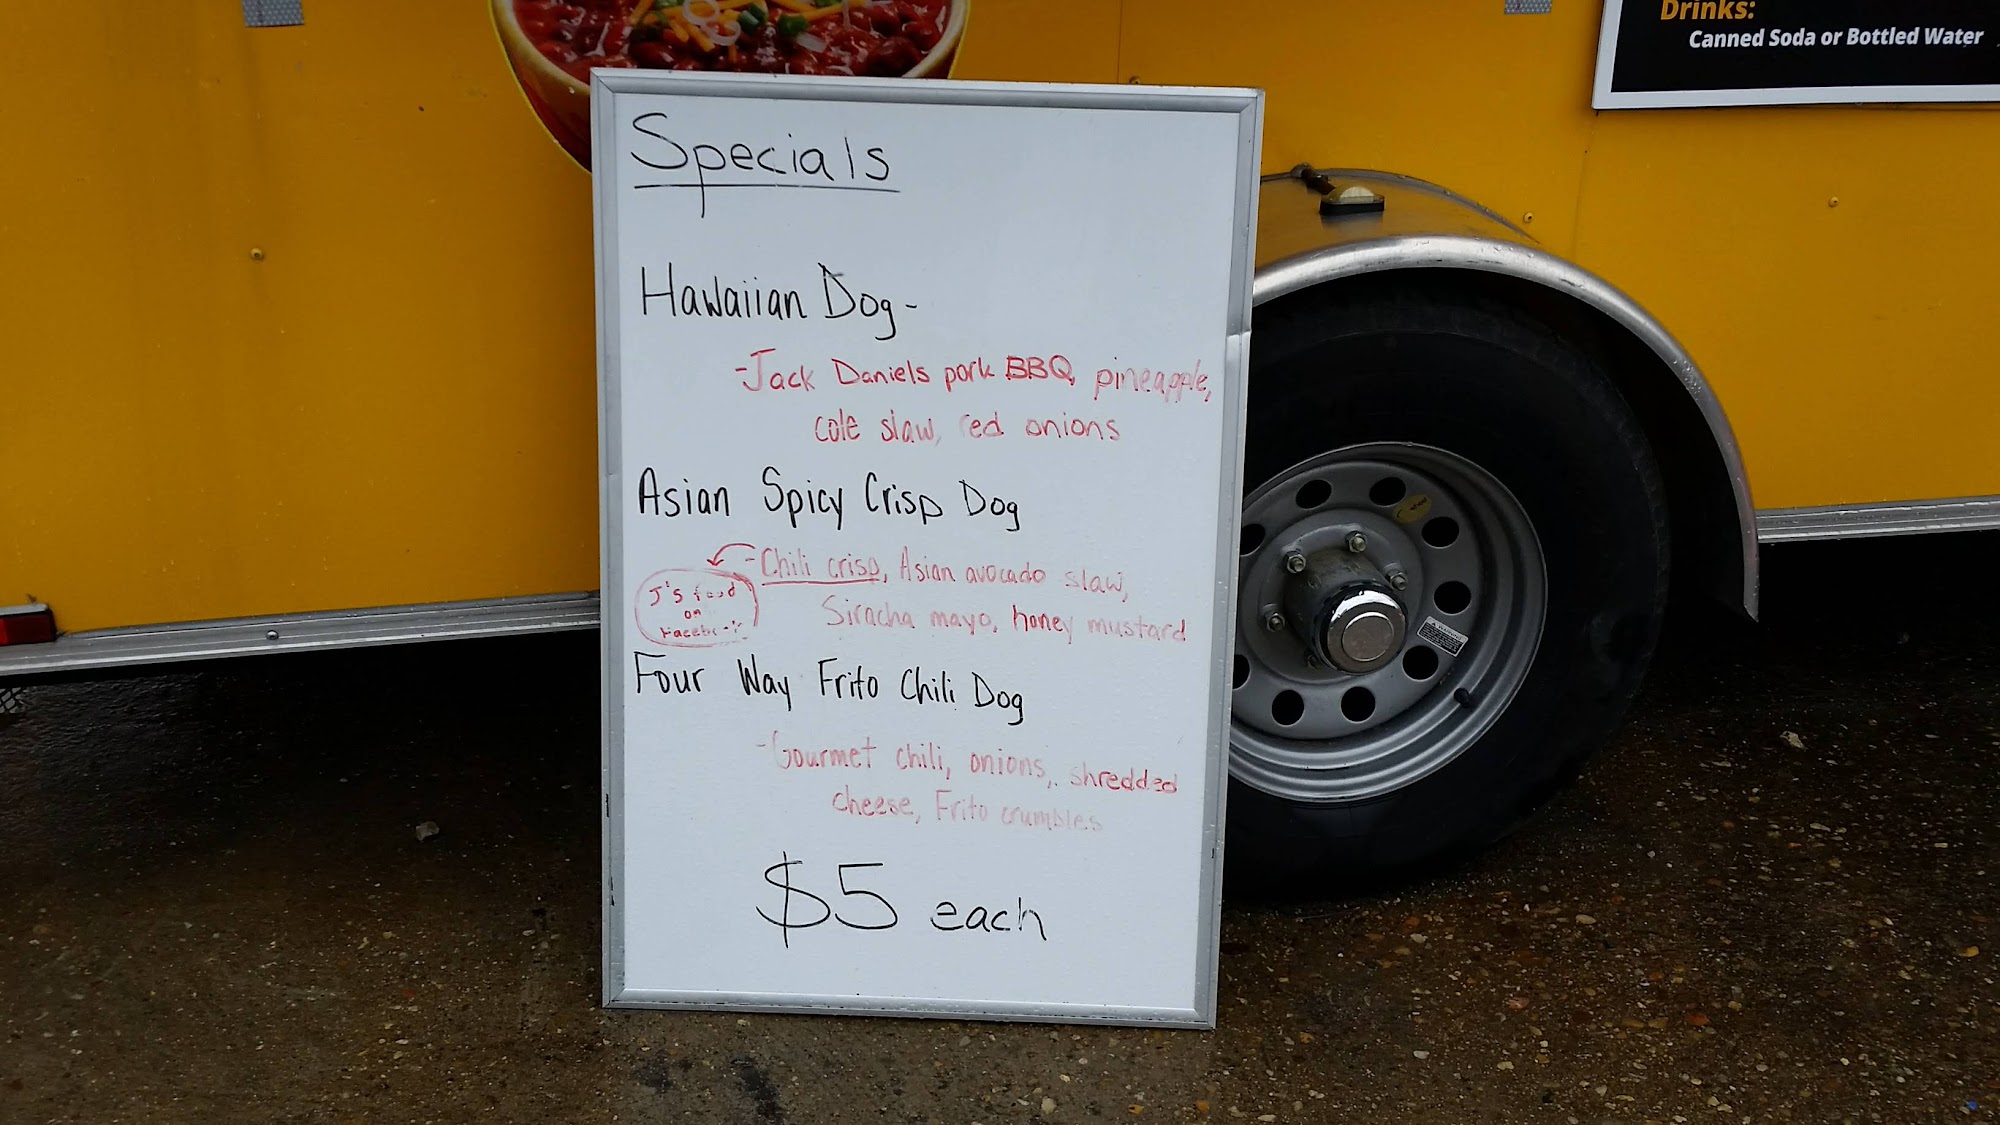 Drinks:
Canned Soda or Bottled Water
Specials
Hawaiian Dog-
-Jack Daniels pork BBQ, pineapple,
cole slaw, red onions
Asian Spicy Crisp Dog
-Chili crisp, Asian avocado slaw,
Siracha mayo, honey mustard
J's food
on
Facebook
Four Way Frito Chili Dog
-Gourmet chili, onions, shredded
cheese, Frito crumbles
$5 each